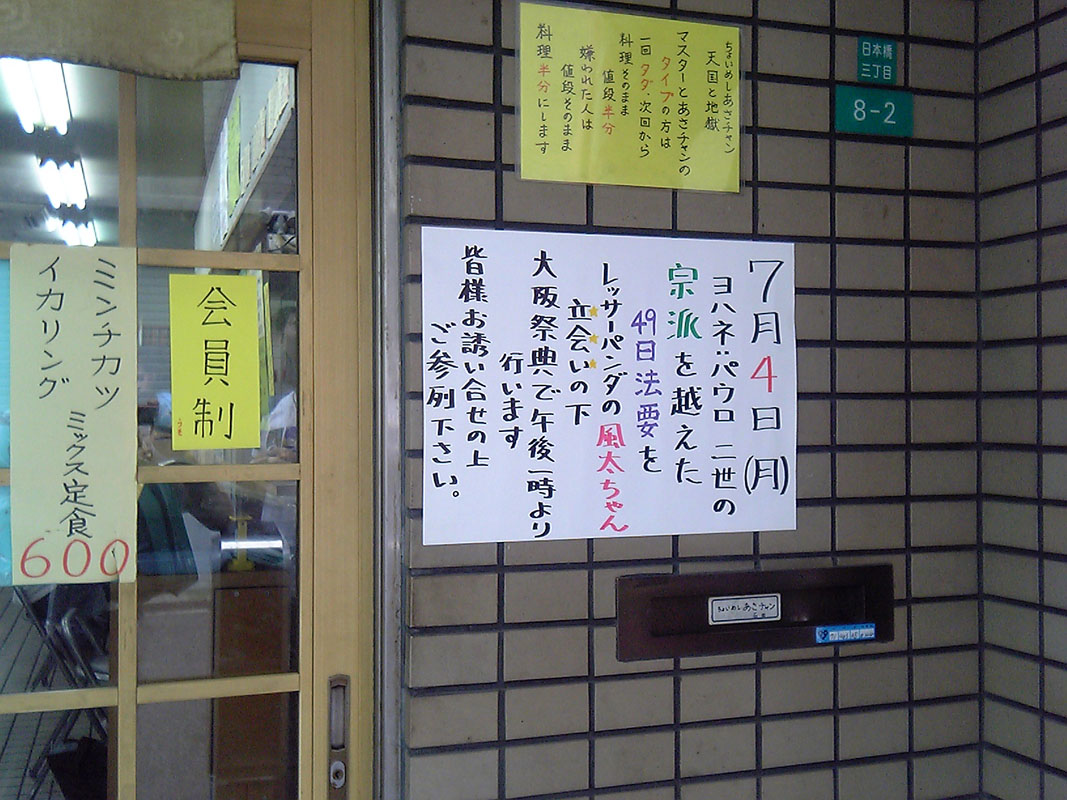 ミンチカツ
イカリング
ミックス定食
600
会員制
うそ
ちょいめしあさチャン
天国と地獄
マスターとあさチャンの
タイプの方は
一回タダ、次回から
料理そのまま
値段半分
嫌われた人は
値段そのまま
料理半分にします
日本橋
三丁目
8-2
7月4日(月)
ヨハネ・パウロ二世の
宗派を越えた
49日法要を
レッサーパンダの風太ちゃん
立会いの下
大阪祭典で午後一時より
行います
皆様お誘い合せの上
ご参列下さい。
ちょいめしあさチャン